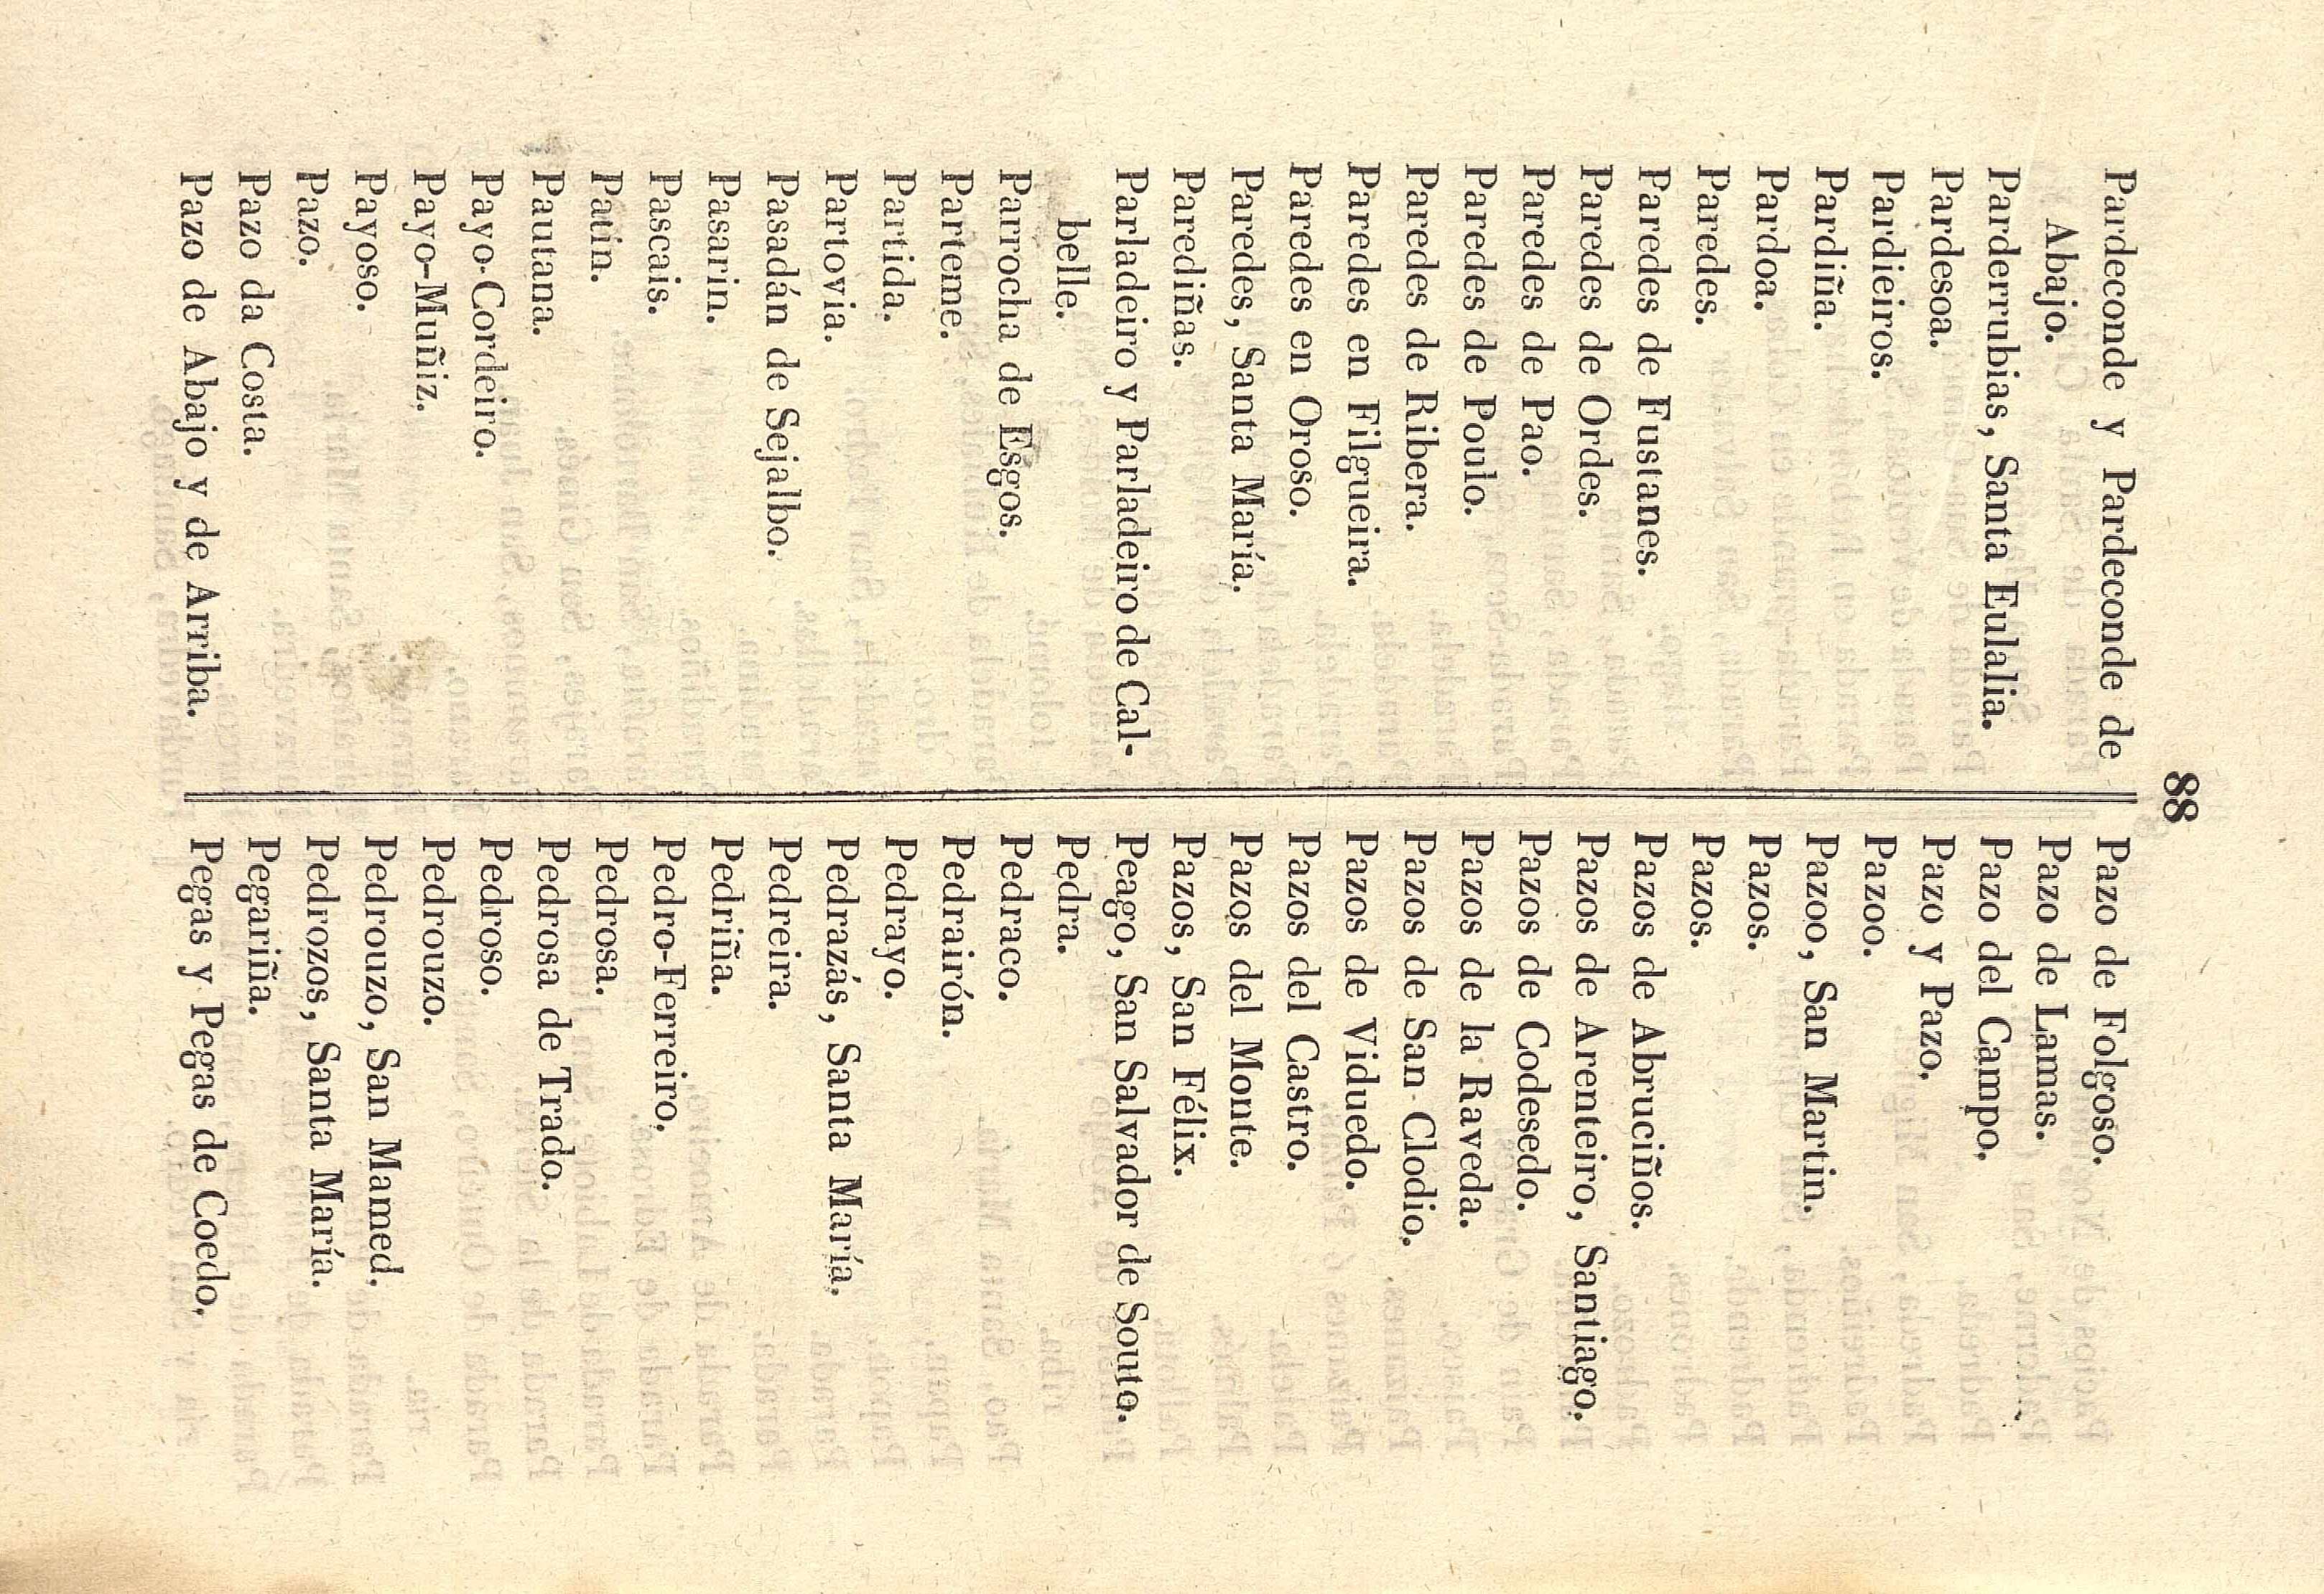 88
Pardeconde y Pardeconde de
Abajo.
Parderrubias, Santa Eulalia.
Pardesoa.
Pardieiros.
Pardiña.
Pardoa.
Paredes.
Paredes de Fustanes.
Paredes de Ordes.
Paredes de Pao.
Paredes de Poulo.
Paredes de Ribera.
Paredes en Filgueira.
Paredes en Oroso.
Paredes, Santa María.
Parediñas.
Parladeiro y Parladeiro de Cal-
belle.
Parrocha de Esgos.
Parteme.
Partida.
Partovia.
Pasadán de Sejalbo.
Pasarin.
Pascais.
Patin.
Pautana.
Payo-Cordeiro.
Payo-Muñiz.
Payoso.
Pazo.
Pazo da Costa.
Pazo de Abajo y de Arriba.
Pazo de Folgoso.
Pazo de Lamas.
Pazo del Campo.
Pazo y Pazo.
Pazoo.
Pazoo, San Martin.
Pazos.
Pazos.
Pazos de Abruciños.
Pazos de Arenteiro, Santiago.
Pazos de Codesedo.
Pazos de la Raveda.
Pazos de San Clodio.
Pazos de Viduedo.
Pazos del Castro.
Pazos del Monte.
Pazos, San Félix.
Peago, San Salvador de Souto.
Pedra.
Pedraco.
Pedrairón.
Pedrayo.
Pedrazás, Santa María.
Pedreira.
Pedriña.
Pedro-Ferreiro.
Pedrosa.
Pedrosa de Trado.
Pedroso.
Pedrouzo.
Pedrouzo, San Mamed.
Pedrozos, Santa María.
Pegariña.
Pegas y Pegas de Coedo.